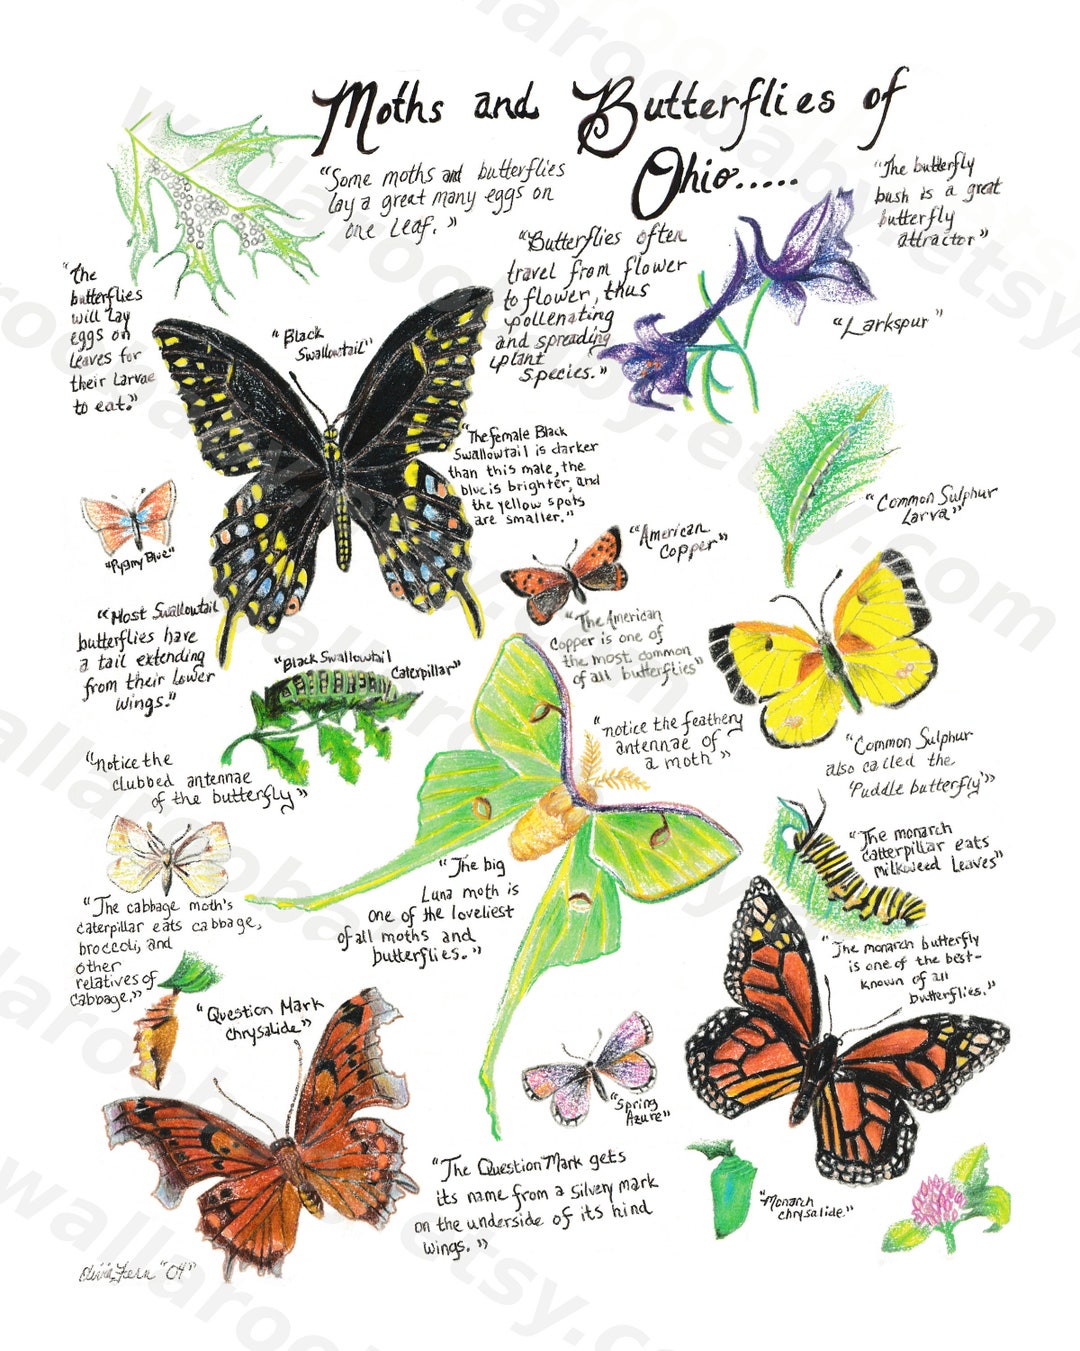 Moths and Butterflies of
Ohio.....
"Some moths and butterflies
lay a great many eggs on
one leaf."
"The butterfly
bush is a great
butterfly
attractor"
"Butterflies often
travel from flower
to flower, thus
pollenating
and spreading
plant
species."
"Larkspur"
"The
butterflies
will lay
eggs on
leaves for
their larvae
to eat."
"Black
Swallowtail"
"The female Black
Swallowtail is darker
than this male, the
blue is brighter, and
the yellow spots
are smaller."
"Common Sulphur
Larva"
"Pygmy Blue"
"American
Copper"
"The American
Copper is one of
the most common
of all butterflies"
"Most Swallowtail
butterflies have
a tail extending
from their lower
wings."
"Black Swallowtail
Caterpillar"
"notice the feathery
antennae of
a moth"
"Common Sulphur
also called the
'Puddle butterfly'"
"notice the
clubbed antennae
of the butterfly"
"The monarch
catterpillar eats
milkweed leaves"
"The big
Luna moth is
one of the loveliest
of all moths and
butterflies."
"The cabbage moth's
caterpillar eats cabbage,
broccoli, and
other
relatives of
cabbage."
"The monarch butterfly
is one of the best-
known of all
butterflies."
"Question Mark
chrysalide"
"Spring
Azure"
"The Question Mark gets
its name from a silvery mark
on the underside of its hind
wings."
"Monarch
chrysalide."
Olivia Fern "04"
wallaroobaby.etsy.com